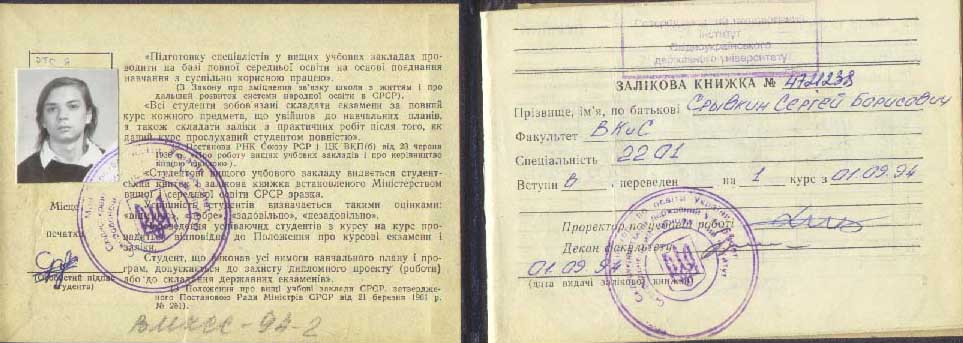 «Підготовку спеціалістів у вищих учбових закладах про-
водити на базі повної середньої освіти на основі поєднання
навчання з суспільно корисною працею».
(З Закону про зміцнення зв'язку школи з життям і про
дальший розвиток системи народної освіти в СРСР).
«Всі студенти зобов'язані складати екзамени за повний
курс кожного предмета, що увійшов до навчальних планів,
а також складати заліки з практичних робіт після того, як
даний курс прослуханий студентом повністю».
Постанова РНК Союзу РСР і ЦК ВКП(б) від 23 червня
1936 р. «Про роботу вищих учбових закладів і про керівництво
вищою школою»).
«Студентові вищого учбового закладу видається студент-
ський квиток і залікова книжка встановленого Міністерством
вищої і середньої освіти СРСР зразка.
Успішність студентів визначається такими оцінками:
«відмінно», «добре», «задовільно», «незадовільно».
Переведення устигаючих студентів з курсу на курс про-
вадиться відповідно до Положення про курсові екзамени і
заліки.
Студент, що виконав усі вимоги навчального плану і про-
грам, допускається до захисту дипломного проекту (роботи)
або до складання державних екзаменів».
(З Положення про вищі учбові заклади СРСР, затвердженого
Постановою Ради Міністрів СРСР від 21 березня 1961 р.
№ 251).
Місце
печатки
(Особистий підпис
студента)
-94-2
інститут
Східноукраїнського
державного університету
ЗАЛІКОВА КНИЖКА № 4721238
Прізвище, ім'я, по батькові Срывкин Сергей Борисович
Факультет ВКиС
Спеціальність 2201
Вступи в, переведен на 1 курс з 01.09.94
Проректор по учбовій роботі
Декан факультету
01.09.94
(дата видачі залікової книжки)